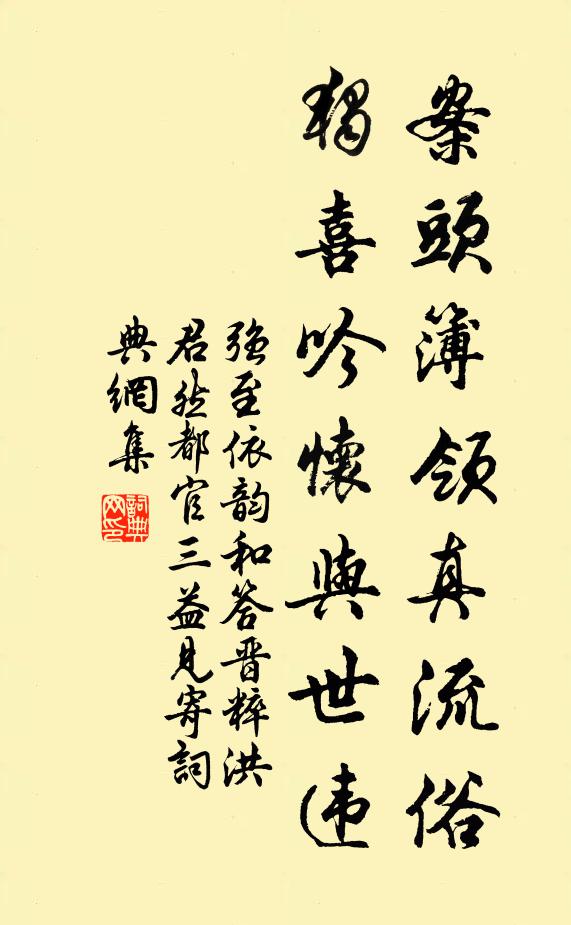 案頭簿領真流俗
獨喜吟懷與世違
強至依韵和答晋粹洪
君然都官三益見寄詞
典網集
詞典
网印